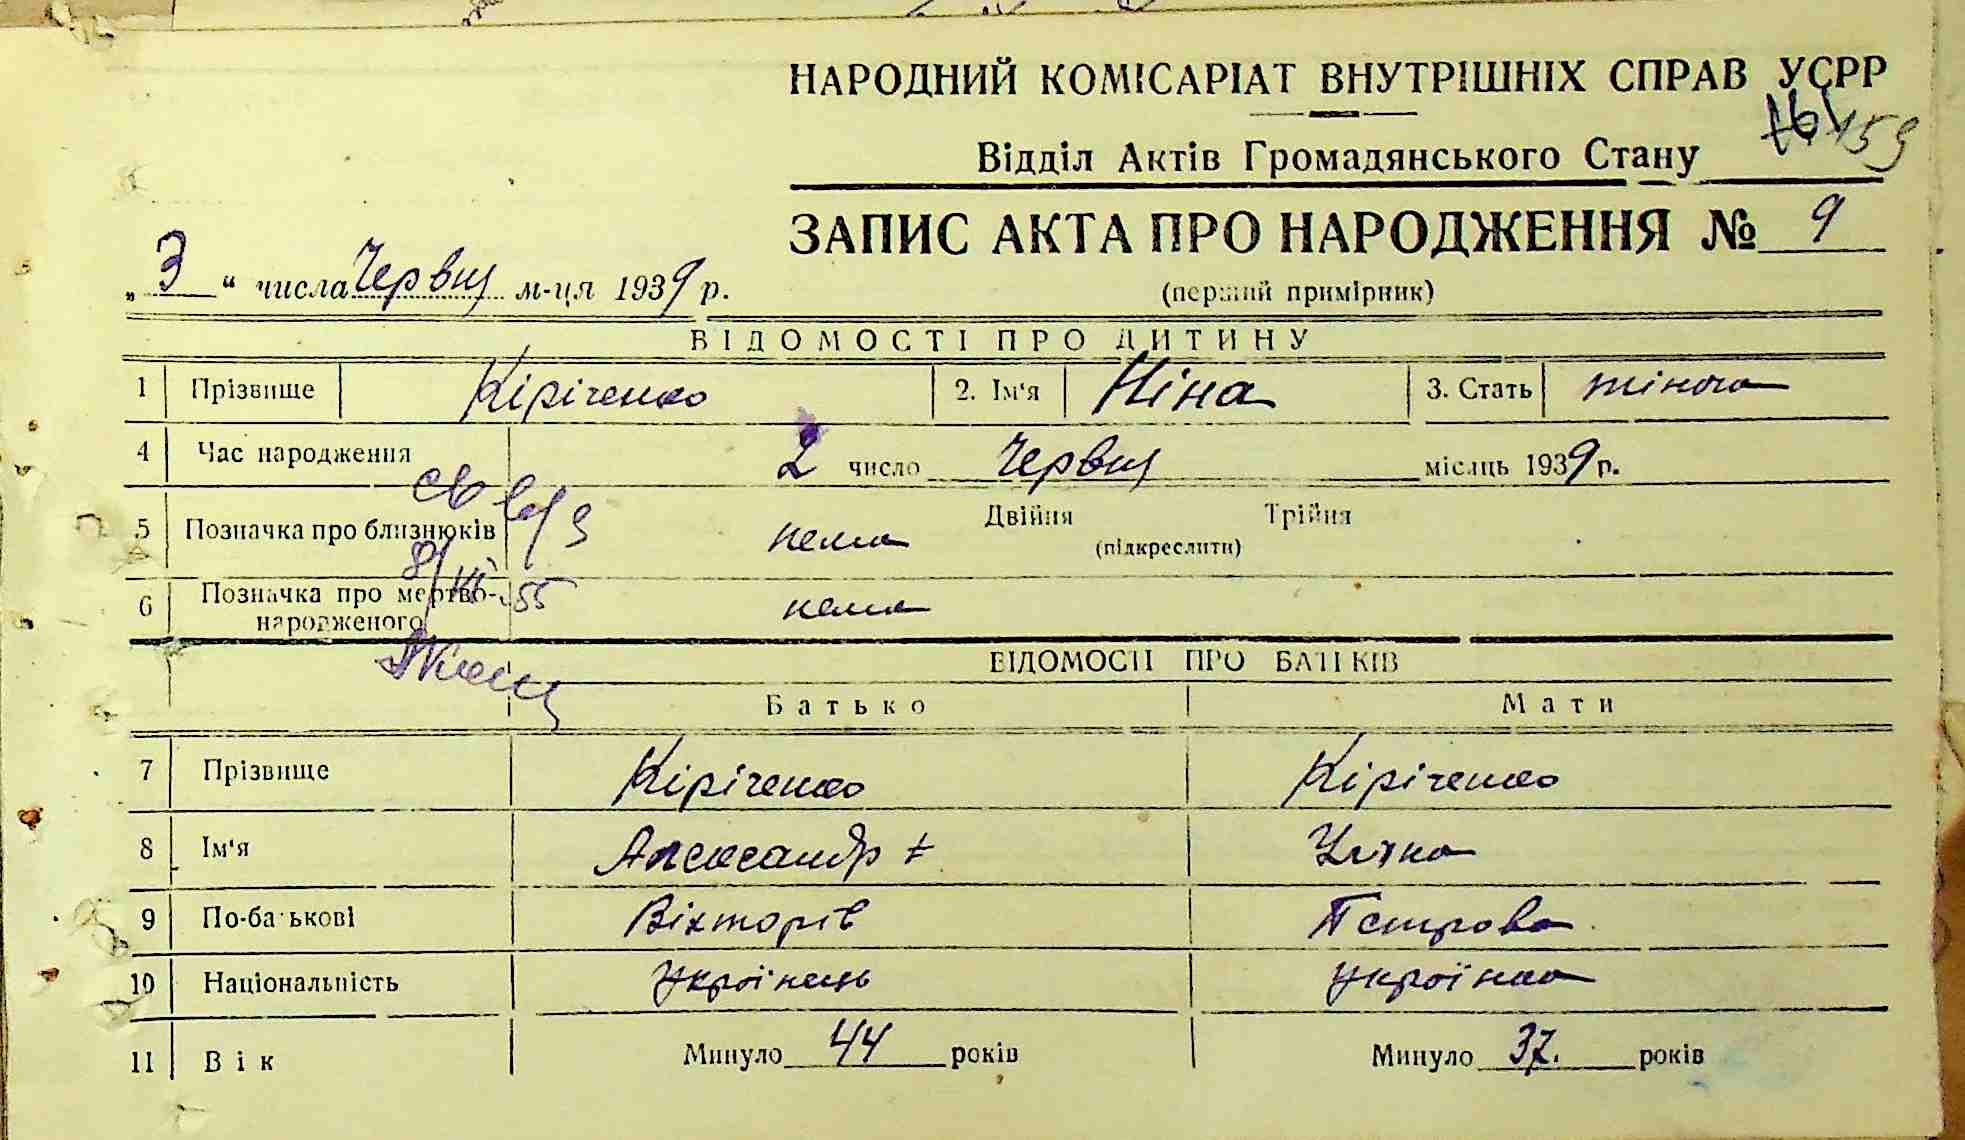 НАРОДНИЙ КОМІСАРІАТ ВНУТРІШНІХ СПРАВ УСРР
159
Відділ Актів Громадянського Стану
ЗАПИС АКТА ПРО НАРОДЖЕННЯ № 9
„3“ числа Червня м-ця 1939 р.
(перший примірник)
ВІДОМОСТІ ПРО ДИТИНУ
1 Прізвище Кіріченко 2. Ім'я Ніна 3. Стать жіноча
4 Час народження 2 число Червня місяць 1939 р.
5 Позначка про близнюків нема Двійня Трійня
(підкреслити)
8/VI 55
6 Позначка про мертво-
народженого нема
ВІДОМОСТІ ПРО БАТЬКІВ
Батько Мати
7 Прізвище Кіріченко Кіріченко
8 Ім'я Александр
9 По-батькові Вікторів Петрова
10 Національність українець українка
11 Вік Минуло 44 років Минуло 37. років